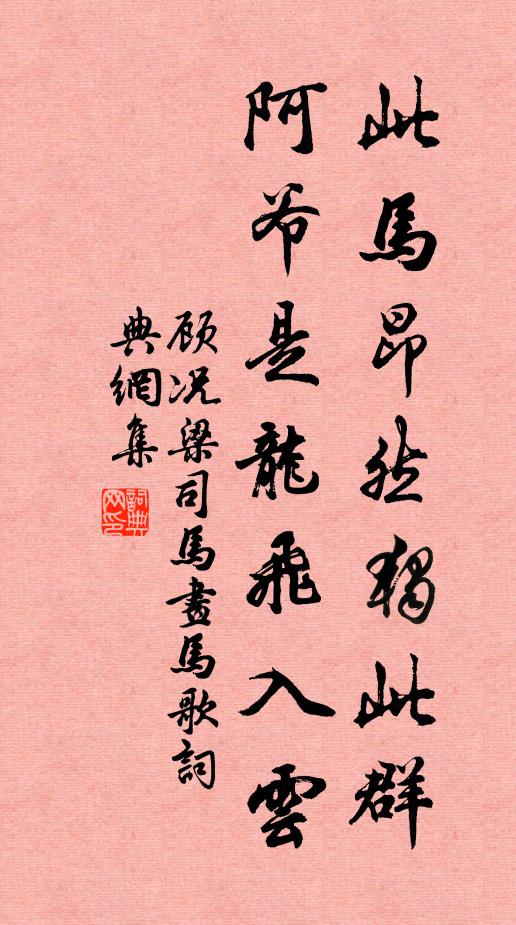 此馬昂然独此群
阿爷是龍飛入雲
顾况梁司馬畫馬歌詞
典網集
詞典网印